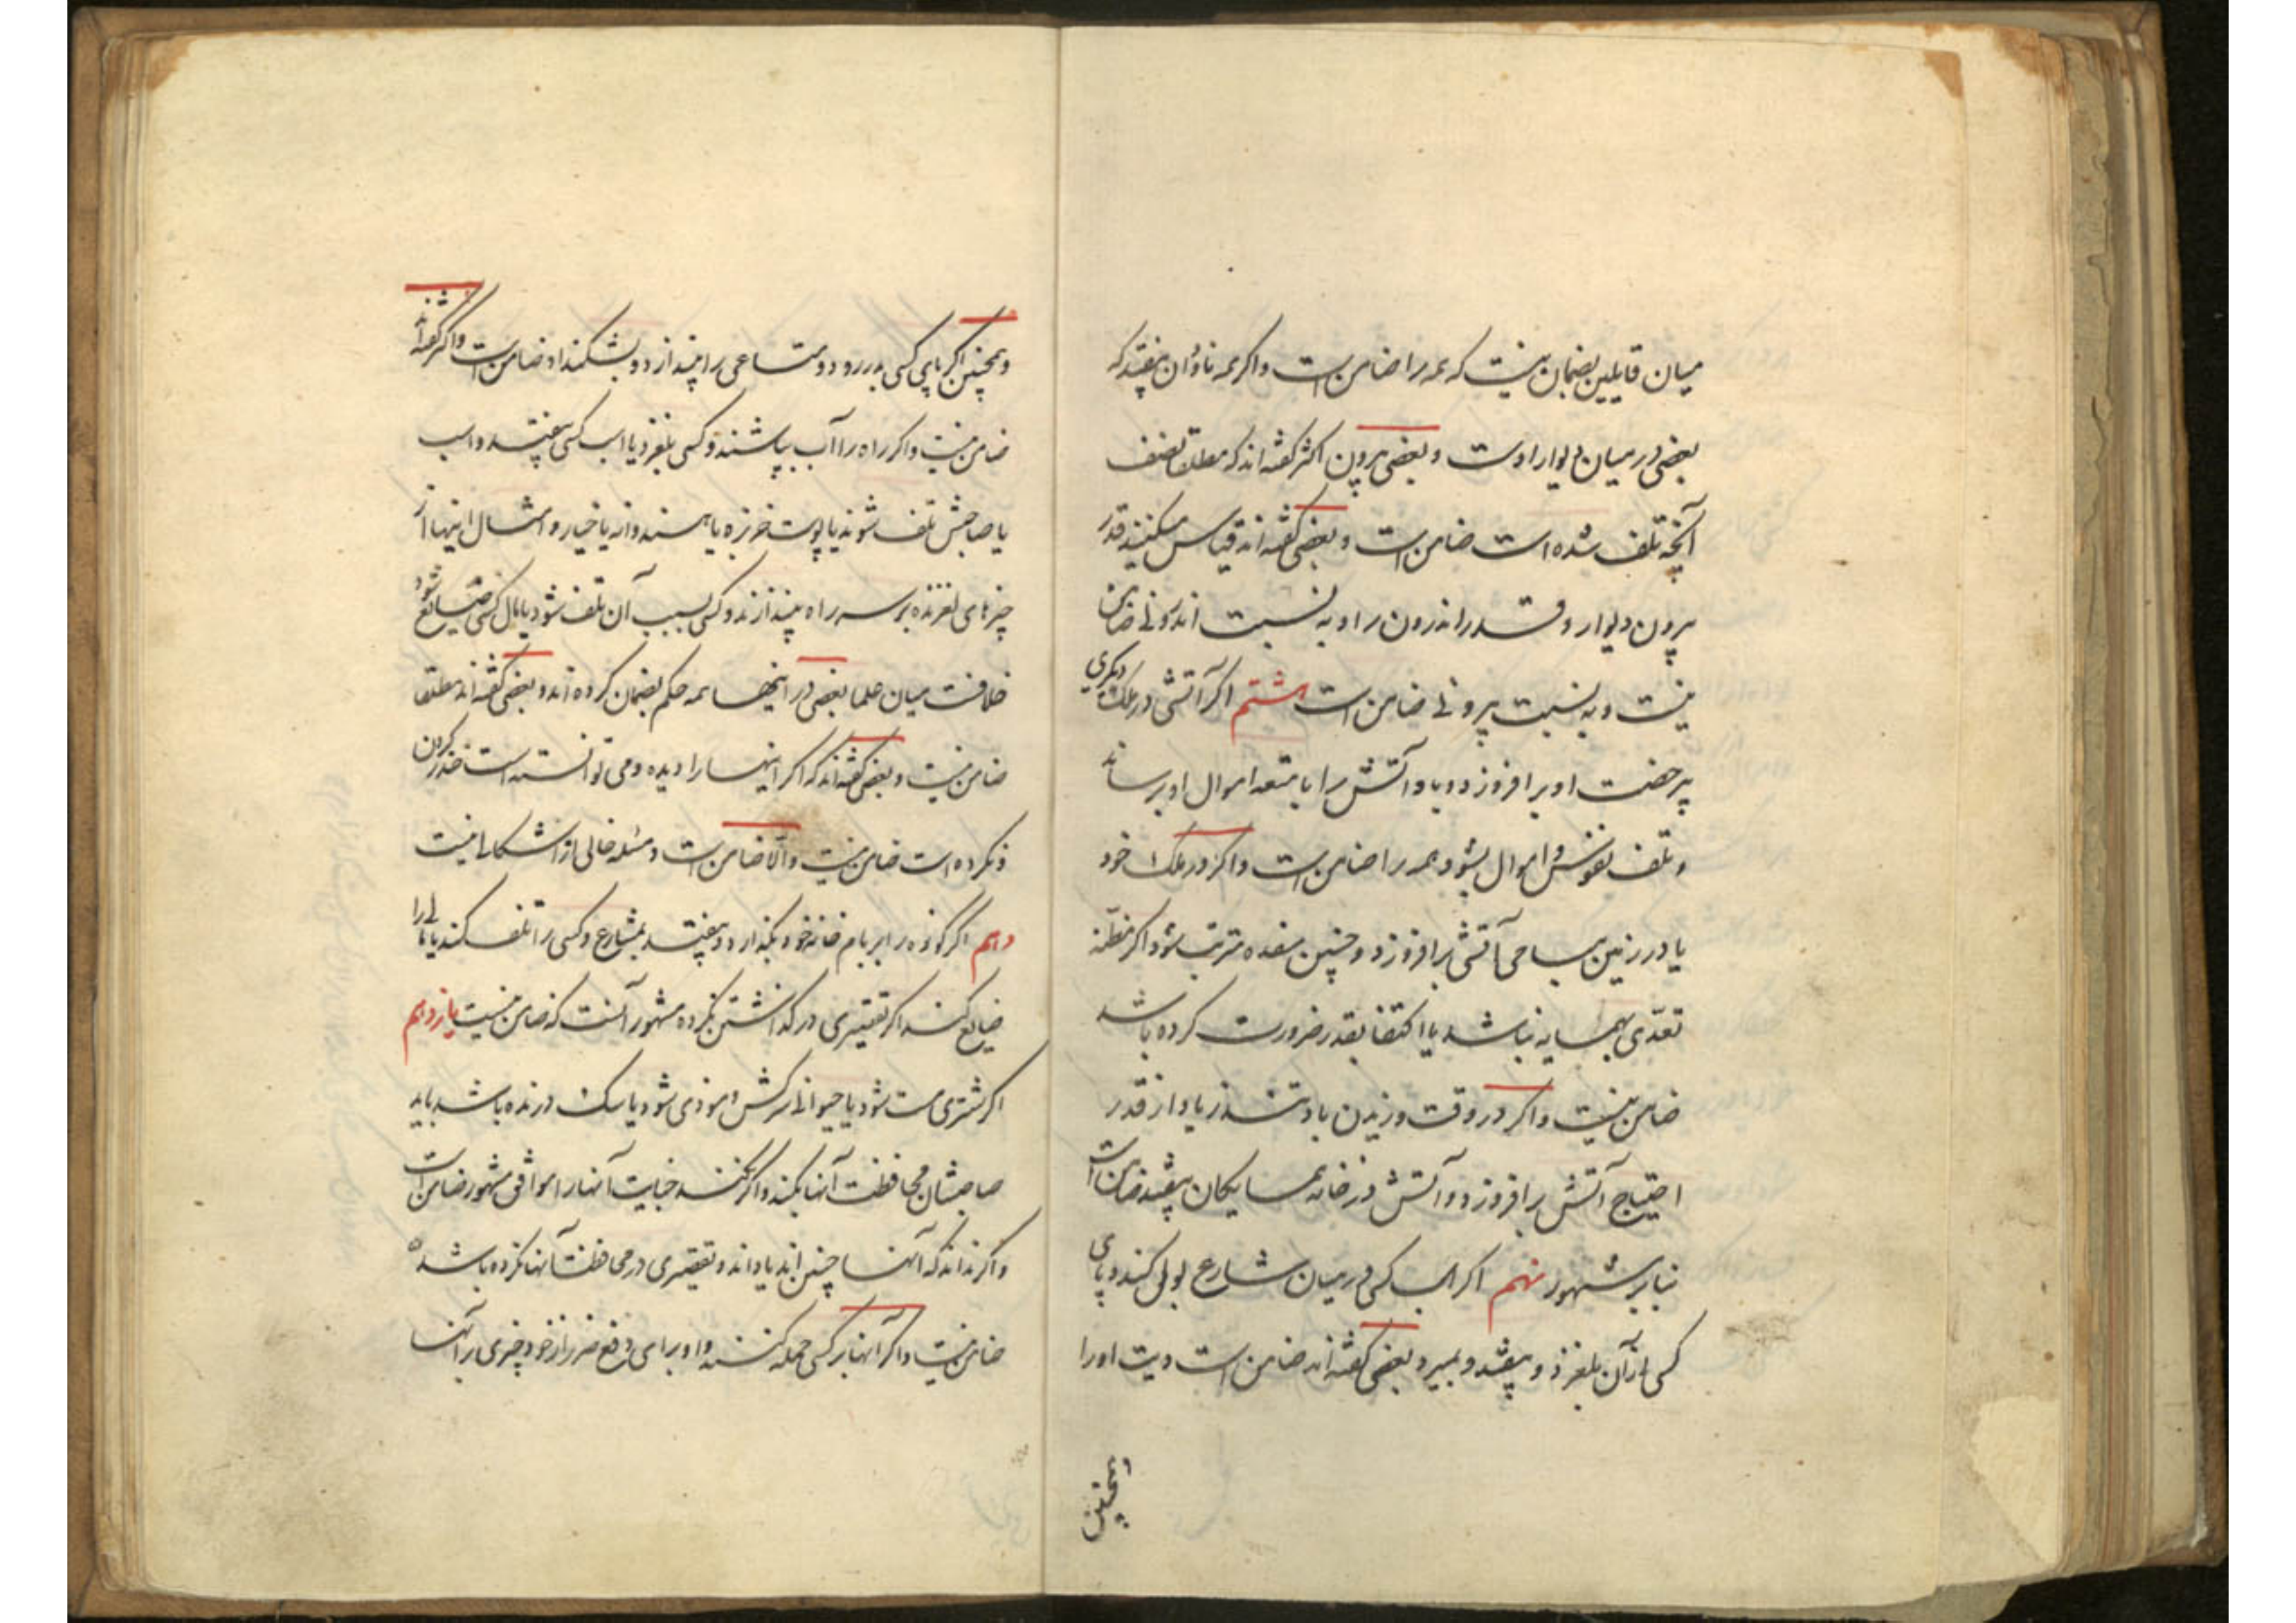 میان قایلین بضمان نیست که همه را ضامن است و اگر همه ناودان بیفتد که
بعضی در میان دیوار اوست و بعضی بیرون اکثر گفته اند که مطلقا نصف
آنچه تلف شده است ضامن است و بعضی گفته اند قیاس میکنند قدر
بیرون دیوار و قدر اندرون را و به نسبت اندرونی ضامن
نیست و به نسبت بیرونی ضامن است هشتم اگر آتشی در ملک دیگری
بی رخصت او بر افروزد و باد آتش را بامتعه اموال او برساند
و تلف نفوس و اموال بشود همه را ضامن است و اگر در ملک خود
یا در زمین مباحی آتشی برافروزد و چنین مفسده مترتب شود اگر مظنه
تعدّی بهمسایه نباشد یا اکتفا بقدر ضرورت کرده باشد
ضامن نیست و اگر در وقت وزیدن باد تند زیاده از قدر
احتیاج آتش برافروزد و آتش در خانه همسایگان بیفتد ضامن است
بنابر مشهور نهم اگر اسب کسی در میان شارع بول کند و پای
کسی از آن بلغزد و بیفتد و بمیرد بعضی گفته اند ضامن است دیت او را
همچنین
و همچنین اگر پای کسی بدر رود و متاعی را بیندازد و بشکند او ضامن است و اکثر گفته اند
ضامن نیست و اگر راه را آب بپاشند و کسی بلغزد یا اسب کسی بیفتد و اسب
یا صاحبش تلف شوند یا پوست خربزه یا هندوانه یا خیار و امثال اینها از
چیزهای لغزنده بر سر راه بیندازند و کسی بسبب آن تلف شود یا مال کسی ضایع شود
خلافست میان علما بعضی در اینها همه حکم بضمان کرده اند و بعضی گفته اند مطلقا
ضامن نیست و بعضی گفته اند که اگر اینها را دیده و می توانسته است حذر کردن
و نکرده است ضامن نیست و الّا ضامن است و مسئله خالی از اشکالی نیست
دهم اگر کوزه را بر بام خانه خود بگذارد و بیفتد بشارع و کسی را تلف کند یا مالی را
ضایع کند اگر تقصیری در گذاشتن نکرده مشهور آنست که ضامن نیست یازدهم
اگر شتری مست شود یا حیوانی سرکش و موذی شود یا سک درنده باشد باید
صاحبشان محافظت آنها بکند و اگر نکند جنایت آنها را موافق مشهور ضامن است
و اگر نداند که آنها چنین اند یا داند و تقصیری در محافظت آنها نکرده باشد
ضامن نیست و اگر آنها بر کسی حمله کنند و او برای دفع ضرر از خود چیزی بر آنها